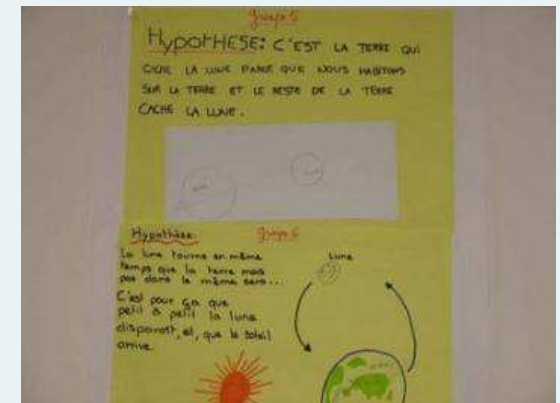 groupe 5
HypotHESE: C'EST LA TERRE QUI
CACHE LA LUNE PARCE QUE NOUS HABITONS
SUR LA TERRE ET LE RESTE DE LA TERRE
CACHE LA LUNE.
Hypothèse: groupe 6
La lune tourne en même
temps que la terre mais
pas dans le même sens...
Lune
C'est pour ça que
petit à petit la lune
disparaît, et, que le soleil
arrive.